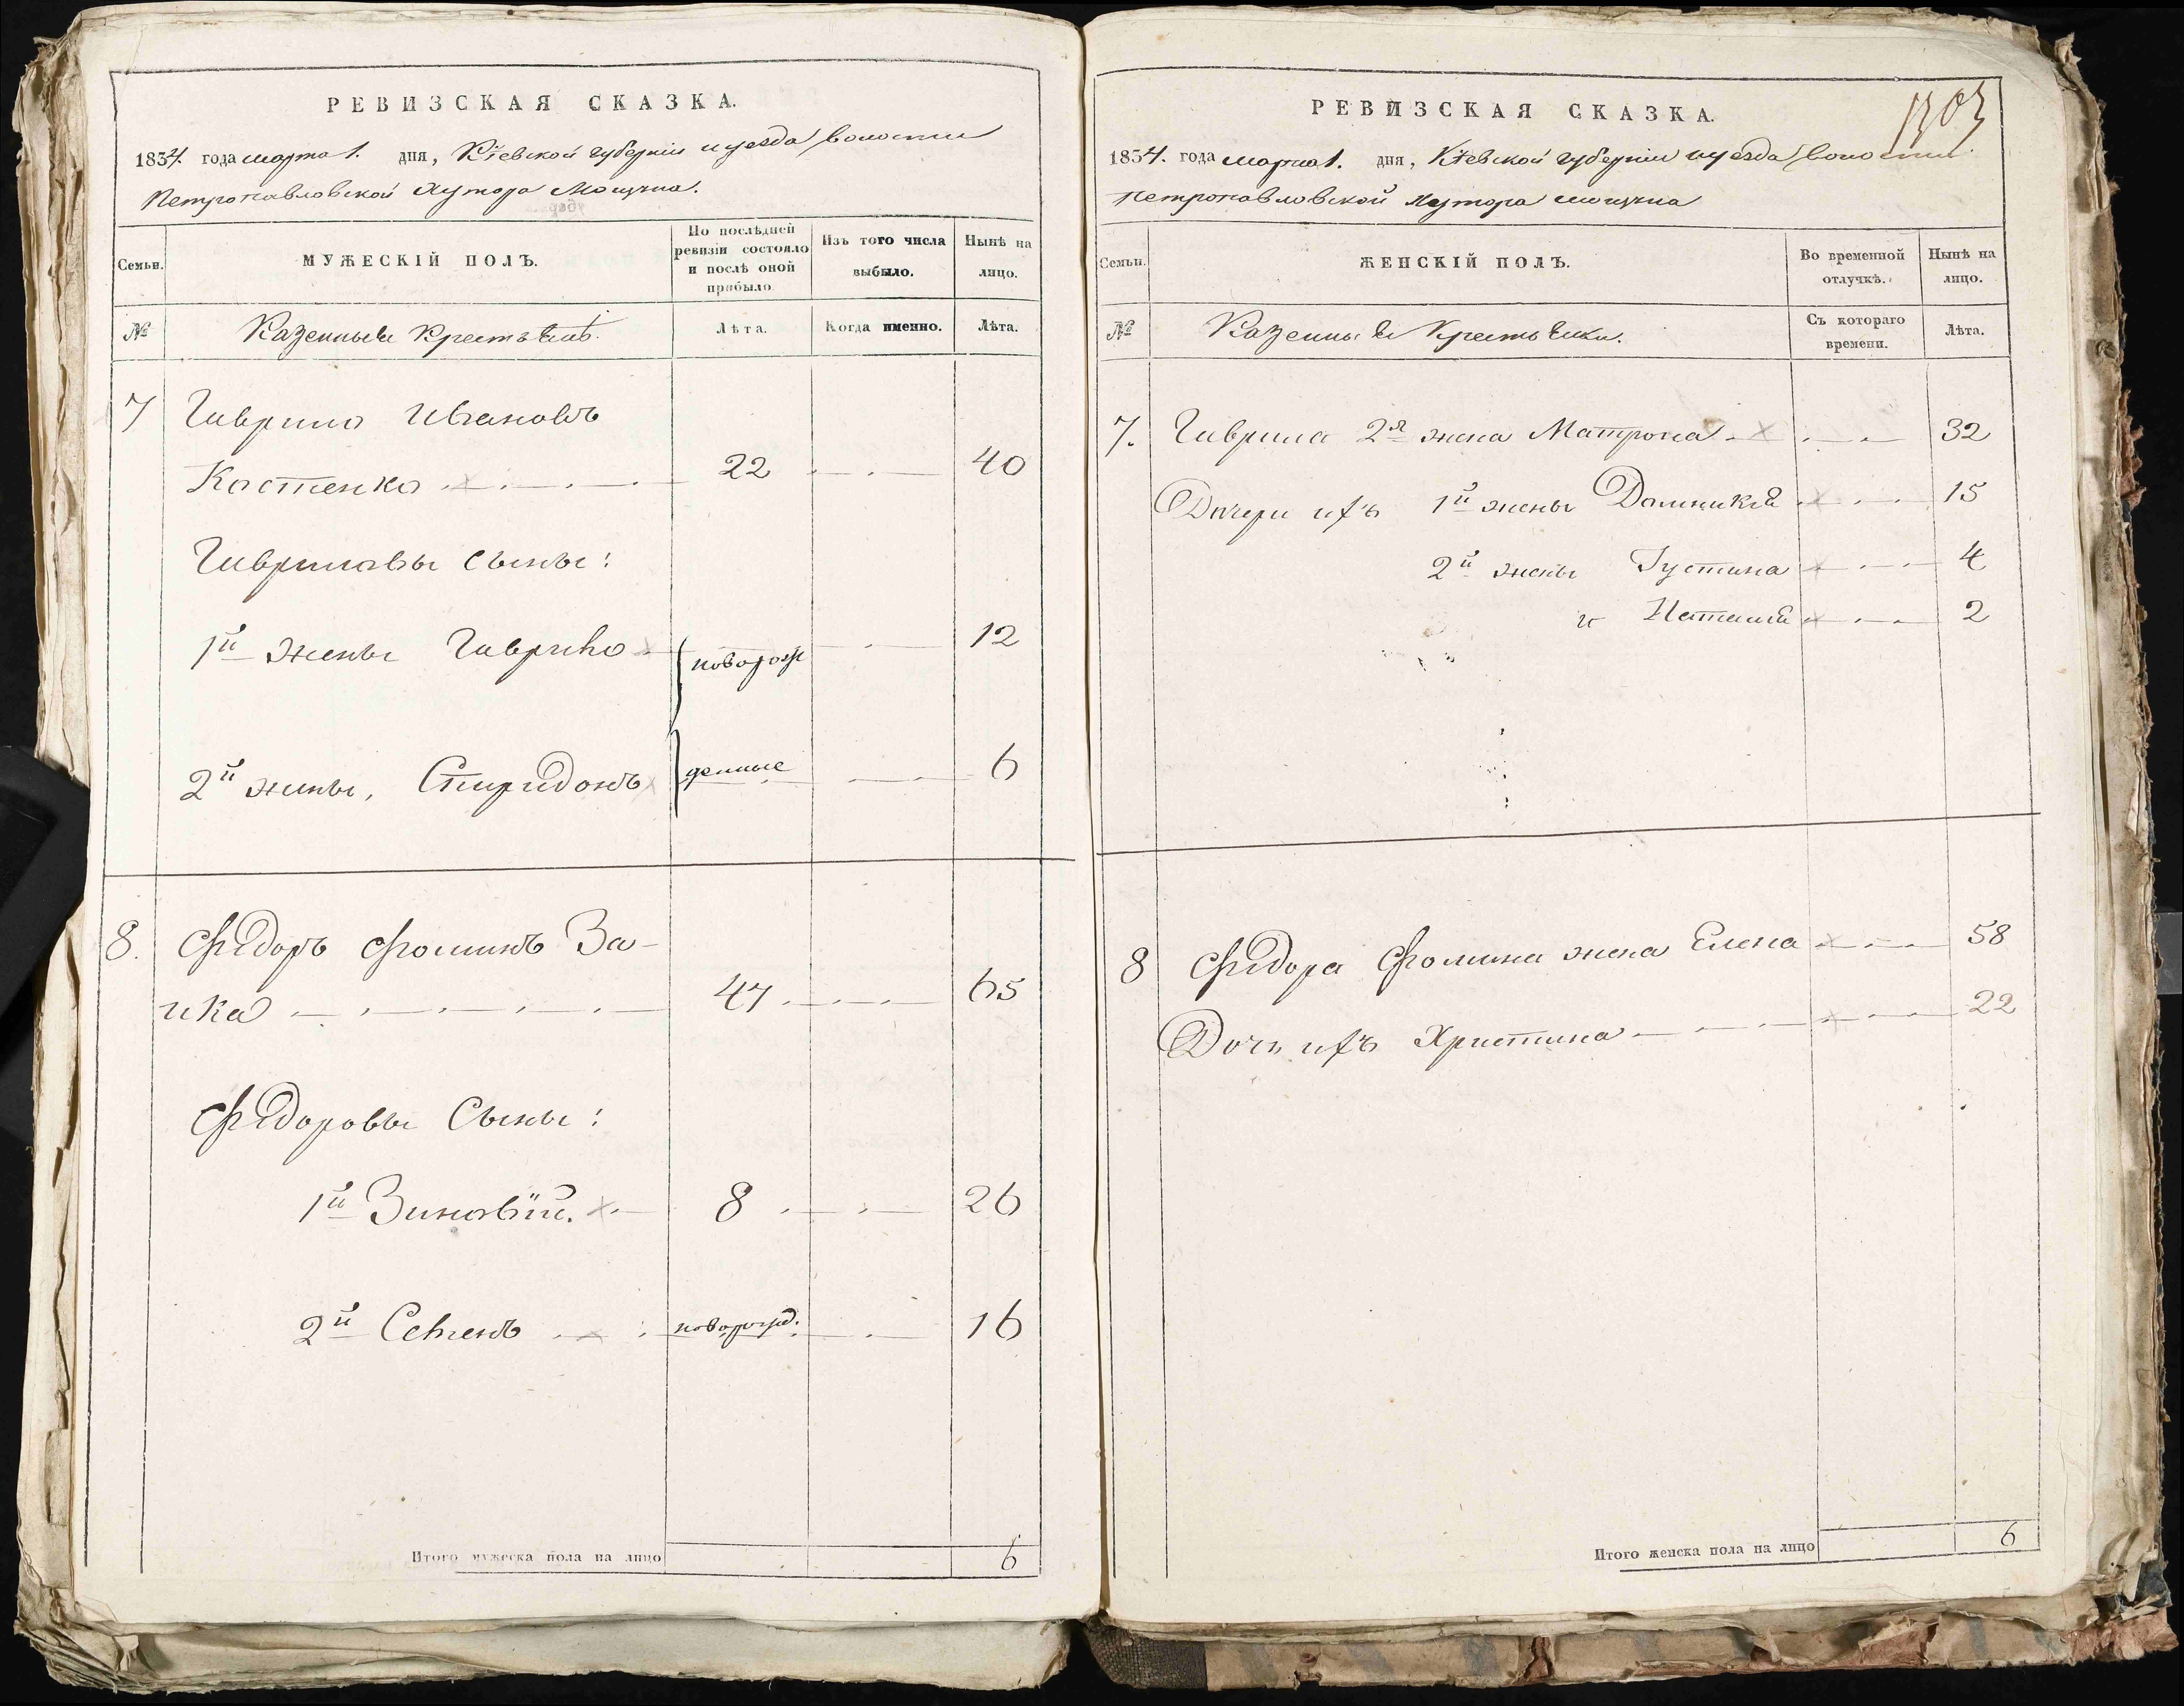 РЕВИЗСКАЯ СКАЗКА.
1834. года марта 1. дня, Кіевской губерніи и уезда волости
Петропавловской Хутора Мощуна.
Семьи.
МУЖЕСКІЙ ПОЛЪ.
По послѣдней ревизіи состояло и послѣ оной прибыло
Изъ того числа выбыло.
Нынѣ на лицо.
№
Казенные Крестьяне.
Лѣта.
Когда именно.
Лѣта.
7 Гаврило Ивановъ
Костенко 22 40
Гавриловы сыны:
1й жены Гаврило новорож 12
2й жены, Спиридонъ денные 6
8. Фѣдоръ Фоминъ За-
ика 47 65
Фѣдоровы Сыны:
1й Зиновій. 8 26
2й Семенъ новорожд. 16
Итого мужеска пола на лицо 6
РЕВИЗСКАЯ СКАЗКА.
1303
1854. года марта 1. дня, Кіевской губерніи и уезда волости
Петропавловской Хутора Мощуна
Семьи.
ЖЕНСКІЙ ПОЛЪ.
Во временной отлучкѣ.
Нынѣ на лицо.
№
Казенные Крестьянки.
Съ котораго времени.
Лѣта.
7. Гаврила 2я жена Матрона 32
Дочери ихъ 1й жены Домникія 15
2й жены Іустина 4
и Наталія 2
8 Фѣдора Фомина жена Елена 58
Дочь ихъ Христина 22
Итого женска пола на лицо 6